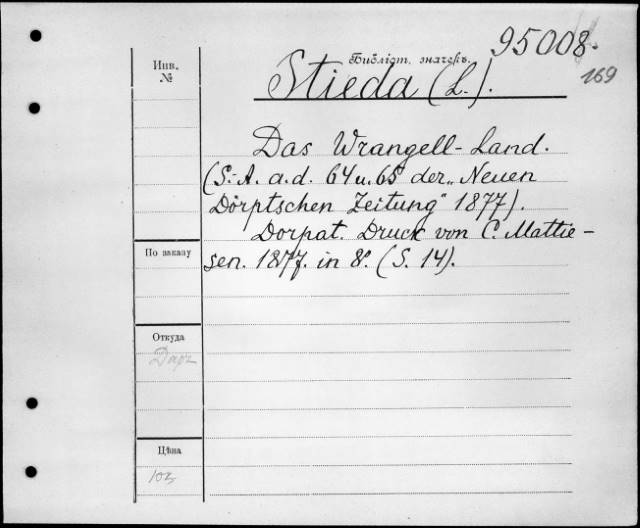 95008.
Библіот. значекъ.
169
Инв.
№
Stieda (L.).
Das Wrangell-Land.
(S.-A. a. d. 64 u. 65 der „Neuen
Dörptschen Zeitung" 1877).
Dorpat. Druck von C. Mattie-
sen. 1877. in 8º. (S. 14).
По заказу
Откуда
Даръ
Цѣна